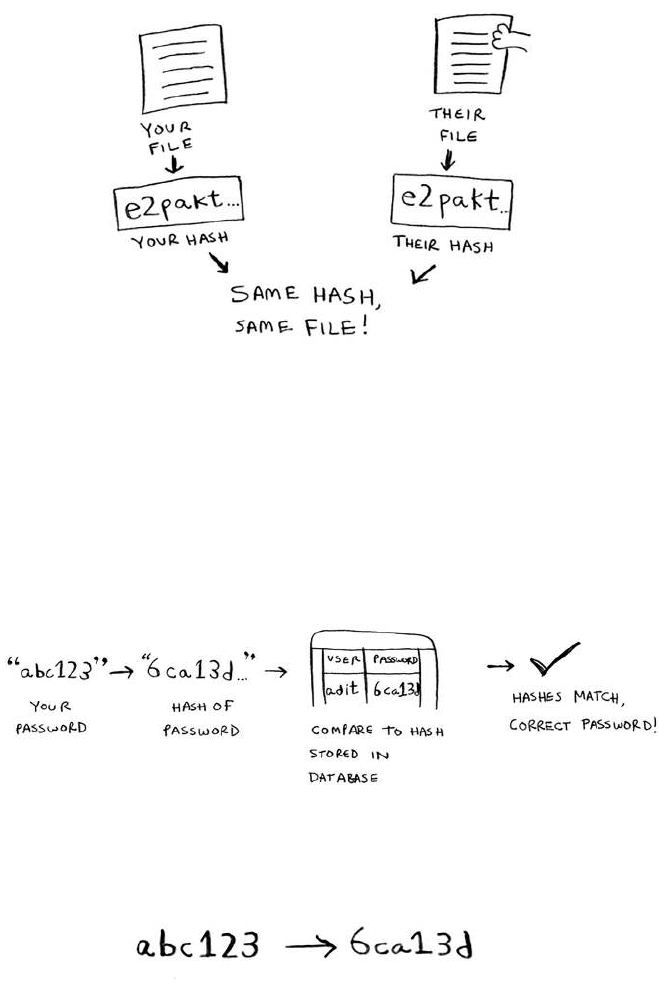 YOUR
FILE
THEIR
FILE
e2pakt...
e2pakt..
YOUR HASH
THEIR HASH
SAME HASH,
SAME FILE!
"abc123" → "6ca13d..." →
YOUR
PASSWORD
HASH OF
PASSWORD
USER PASSWORD
adit 6ca13d
COMPARE TO HASH
STORED IN
DATABASE
→ ✓
HASHES MATCH,
CORRECT PASSWORD!
abc123 → 6ca13d